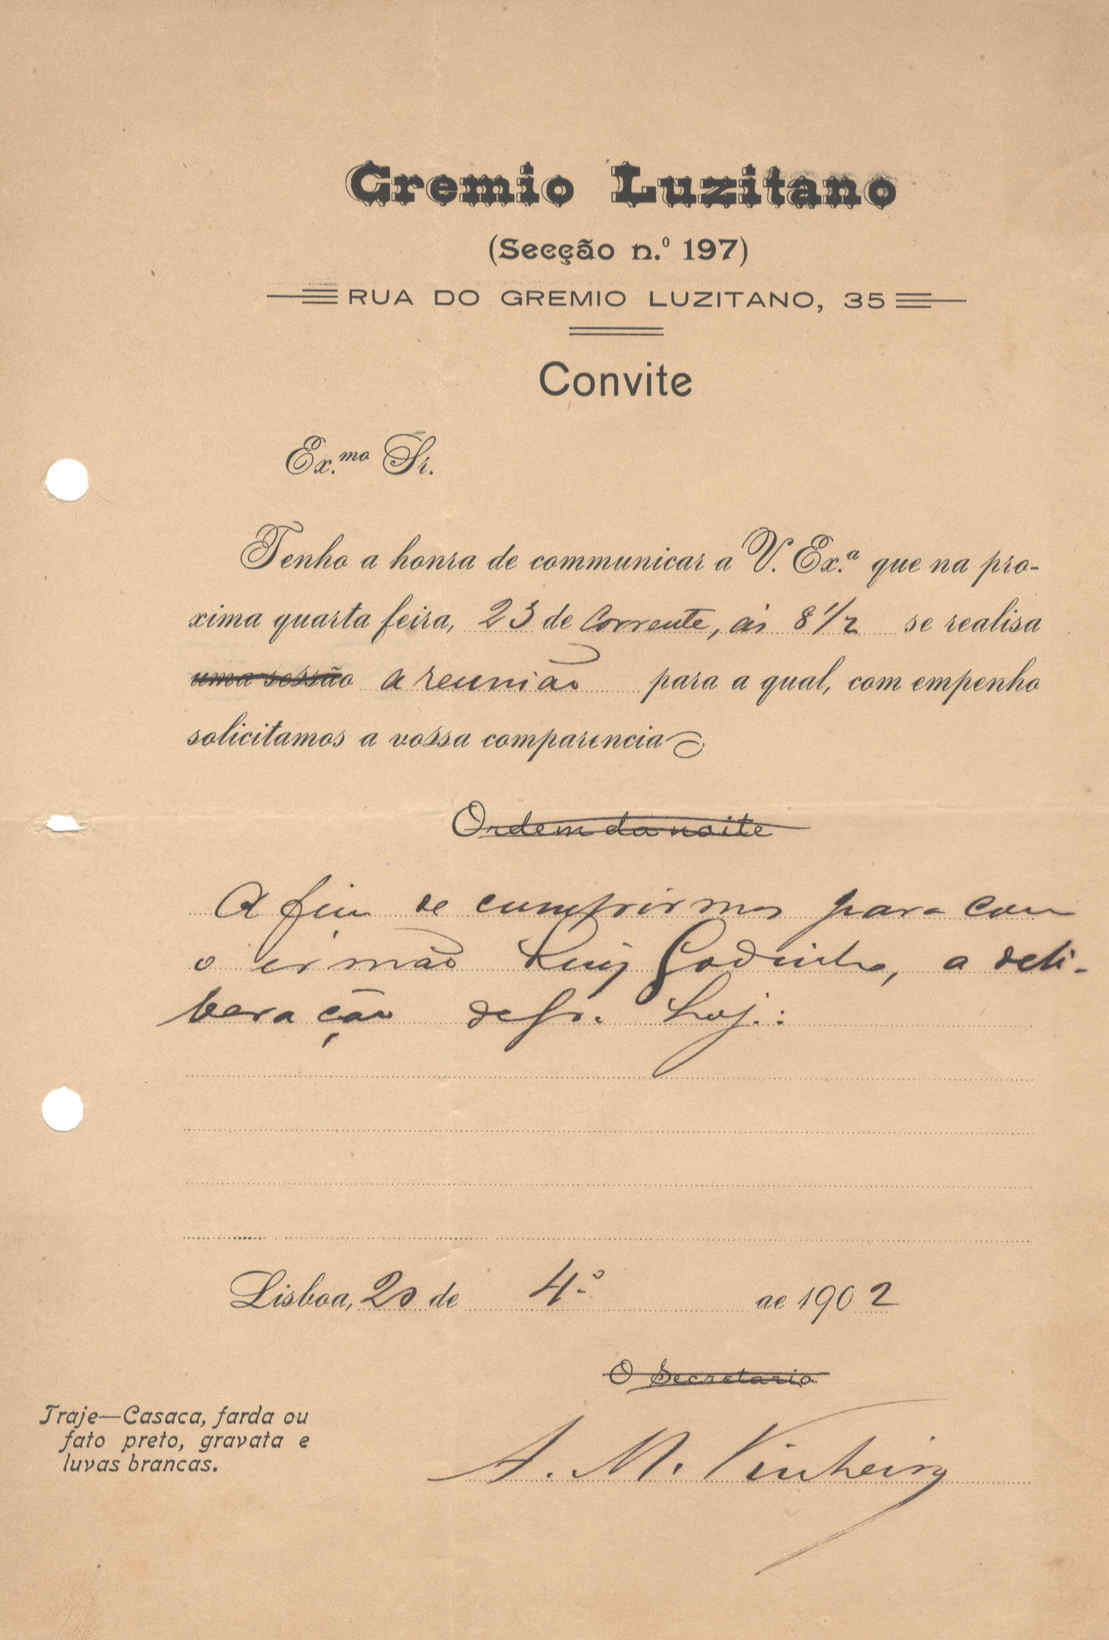 Gremio Luzitano
(Secção n.º 197)
RUA DO GREMIO LUZITANO, 35
Convite
Ex.mo Sr.
Tenho a honra de communicar a V. Ex.ª que na pro-
xima quarta feira, 23 de corrente, ás 8 1/2 se realisa
uma sessão a reunião para a qual, com empenho
solicitamos a vossa comparencia
Ordem da noite
A fim de cumprirmos para com
o irmão Luiz Godinho, a deli-
beração
Lisboa, 20 de 4.º de 1902
O Secretario
Traje—Casaca, farda ou
fato preto, gravata e
luvas brancas.
A. M. Pinheiro